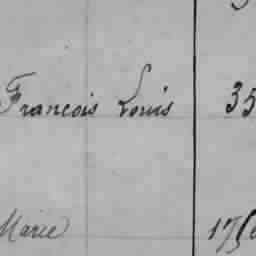 Francois Louis 35
Marie